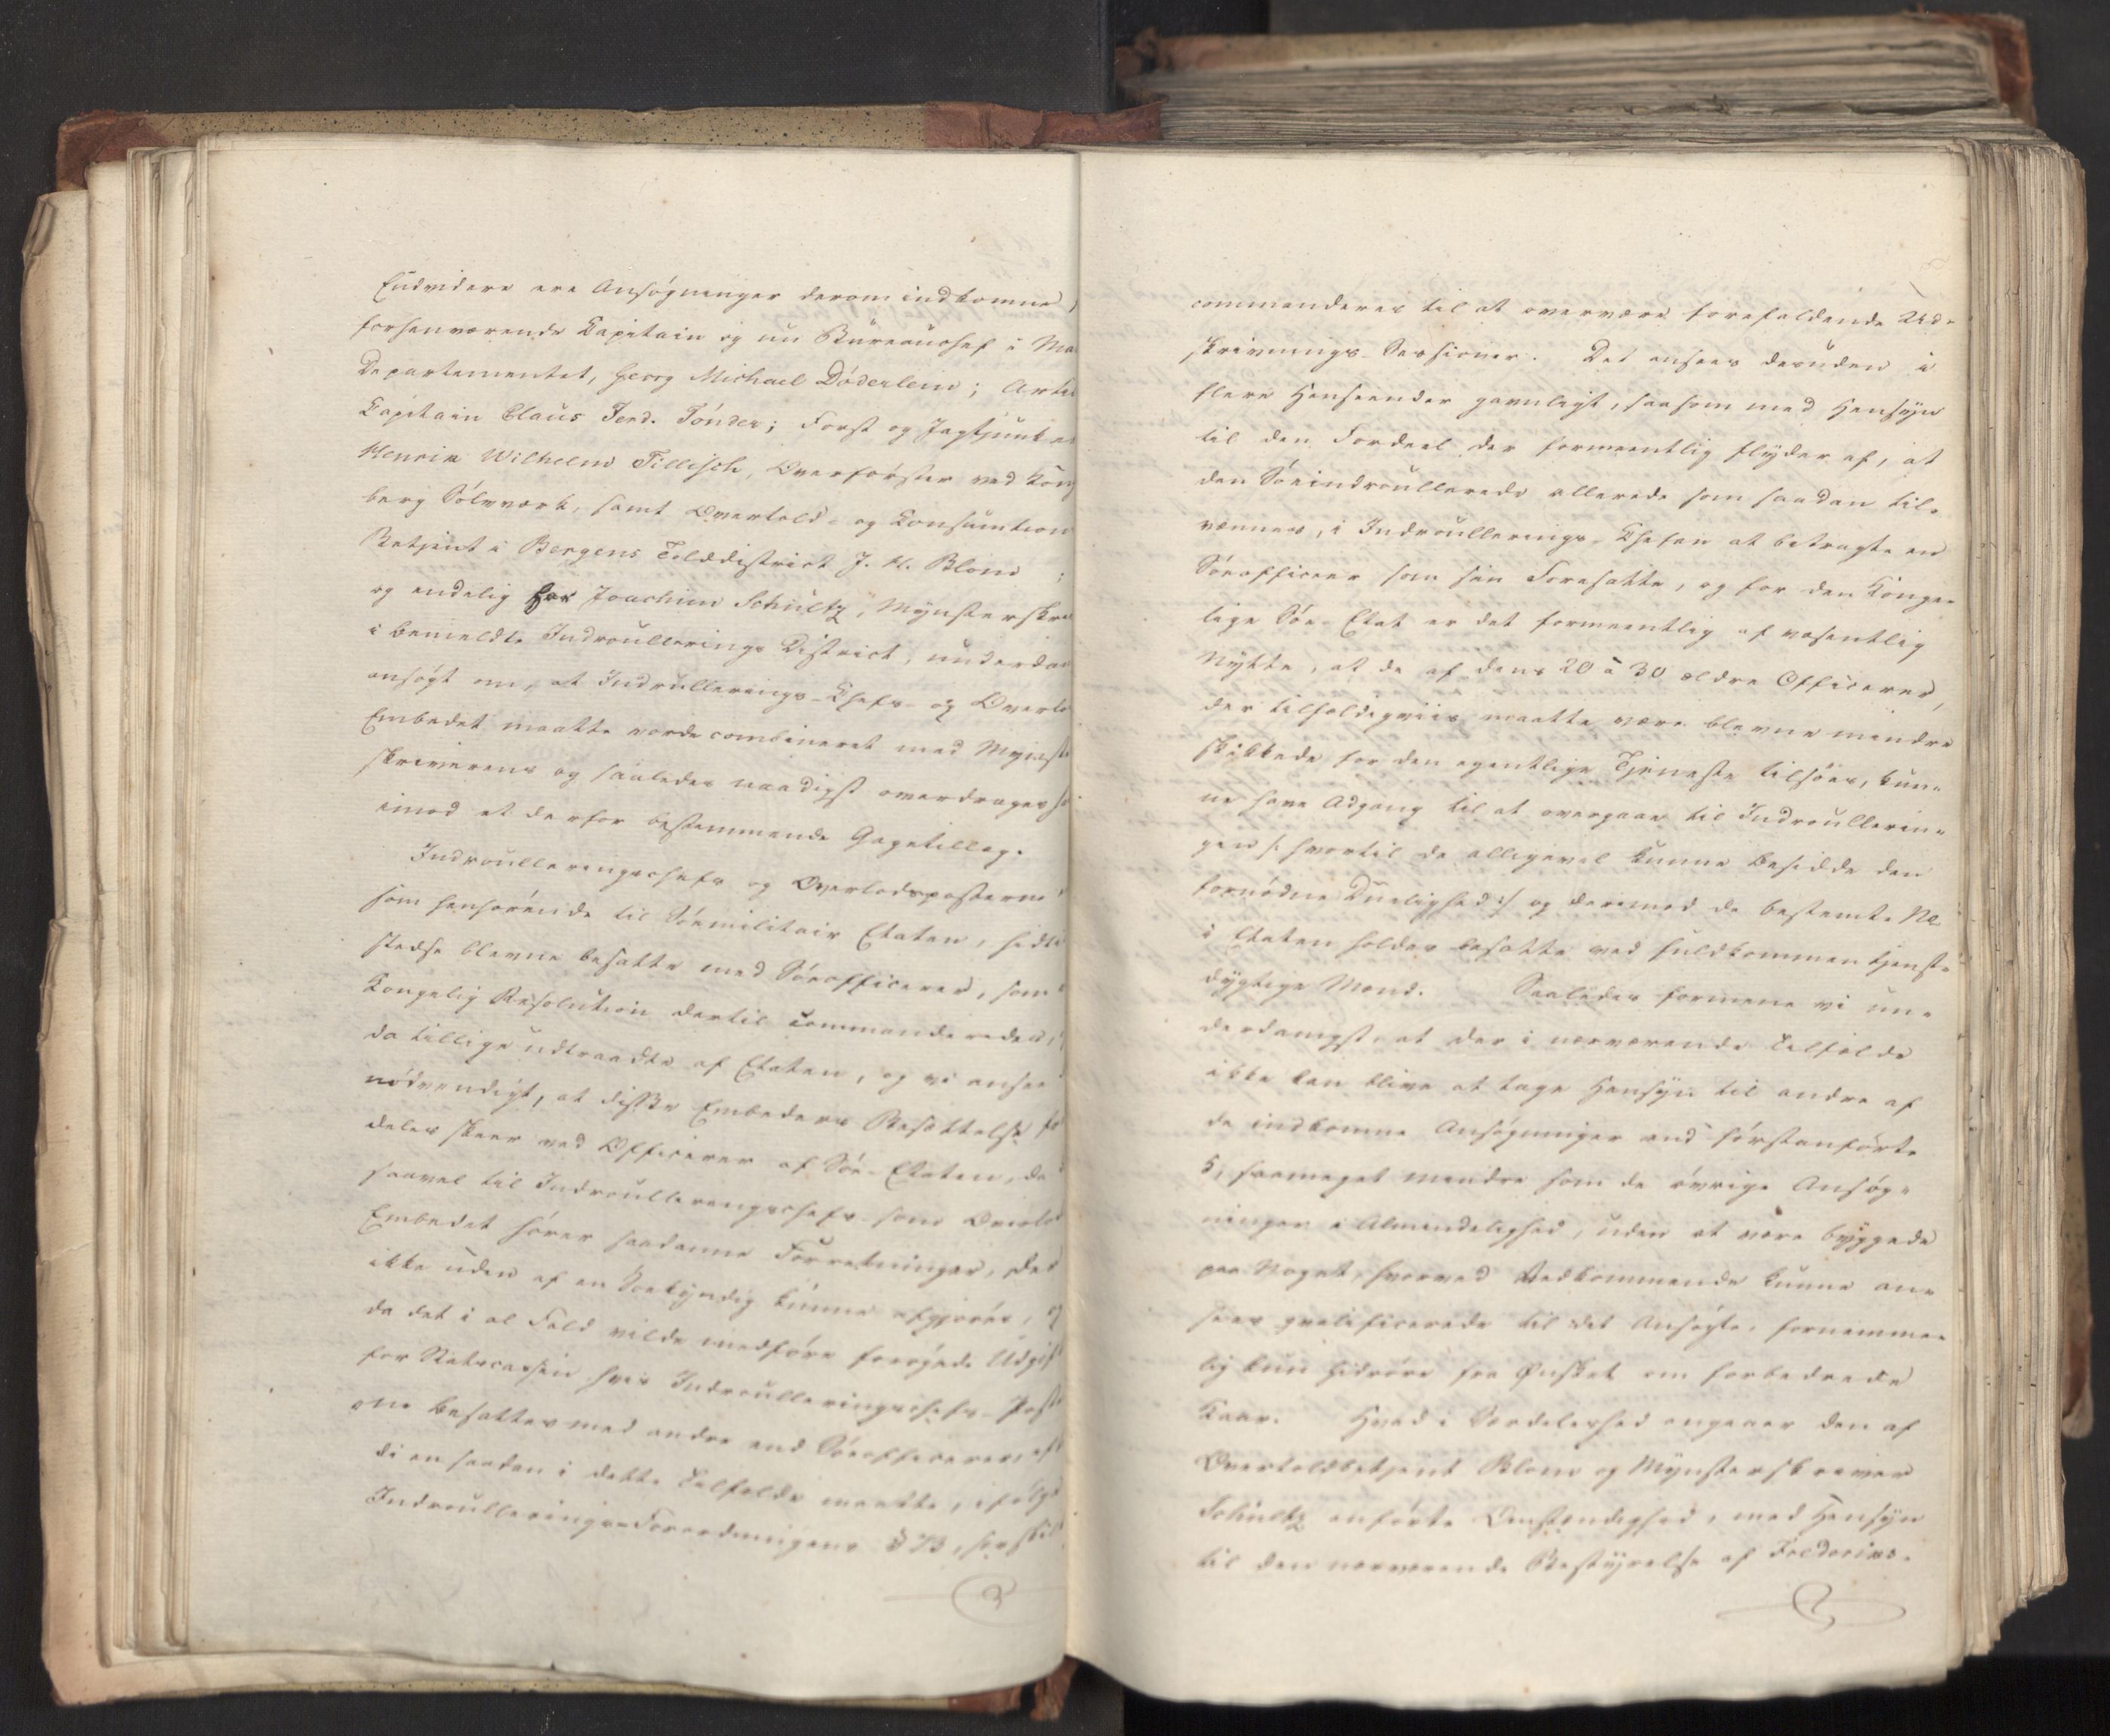 Endvidere ere Ansøgninger derom indkomne
forhenværende Capitain og nu Büreauchef i Ma
Departementet, Georg Michael Döderlein; Artil
Capitain Claus Ferd. Tönder; Forst og Jagtjunker
Henrik Wilhelm Tillisch, Overförster ved Kong
berg Sölvværk, samt Overtold- og Consumtion
Betjent i Bergens Tolddistrict J. H. Blom ;
og endelig har Joachim Schultz, Mynsterskri
i bemeldte Indroullerings District, underda
ansøgt om, at Indrullerings-Chefs- og Overlo
Embedet maatte vorde combineret med Mynste
skriverens og saaledes naadigst overdrages
imod et derfor bestemmende Gagetillæg.
Indroulleringschefs og Overlodsposterne
som henhörende til Söemilitair Etaten, hidti
stedse blevne besatte med Söeofficerer, som
Kongelig Resolution dertil commanderedes,
da tillige udtraadte af Etaten, og vi ansee
nödvendigt, at disse Embeders Besættelse
deles skeer ved Officerer af Söe-Etaten, da
saavel til Indroulleringschefs- som Overlod
Embedet hører saadanne Forretninger, der
ikke uden af en Søekyndig kunne afgjøres, og
da det i al Fald vilde medföre forøgede Udgift
for Statscassen hvis Indroulleringschefs-Poste
rne besattes med andre end Söeofficerer, ef
di en saadan i dette Tilfælde maatte, ifølge
Indroullerings-Forordningens § 73, særskilt
commanderes til at overvære forefaldende Ud-
skrivnings-Sessioner. Det ansees desuden i
flere Henseender gavnligt, saasom med Hensyn
til den Fordeel der formeentlig flyder af, at
den Söeindroullerede allerede som saadan til-
vænnes, i Indroullerings-Chefen at betragte en
Söeofficeer som sin Foresatte, og for den Konge-
lige Söe-Etat er det formeentlig af væsentlig
Nytte, at de af dens 20 a 30 ældre Officerer,
der tilfældigviis maatte være blevne mindre
skikkede for den egentlige Tjeneste tilsöes, kun-
ne have Adgang til at overgaae til Indroullerin-
gen /: hvortil de alligevel kunne besidde den
fornödne Duelighed :/ og derimod de bestemte
i Etaten holdes besatte ved fuldkommen tjenst-
dygtige Mænd. Saaledes formene vi un-
derdanigst, at der i nærværende Tilfælde
ikke kan blive at tage Hensyn til andre af
de indkomne Ansøgninger end förstanförte
5, saameget mindre som de övrige Ansøg-
ninger i Almindelighed, uden at være byggede
paa Noget, hvorved Vedkommende kunne an-
sees qvalificerede til det Ansøgte, fornemme-
lig kun hidröre fra Ønsket om forbedrede
Kaar. Hvad i Særdeleshed angaaer den af
Overtoldbetjent Blom og Mynsterskriver
Schultz anförte Omstændighed, med Hensyn
til den nærværende Bestyrelse af Frederiks-